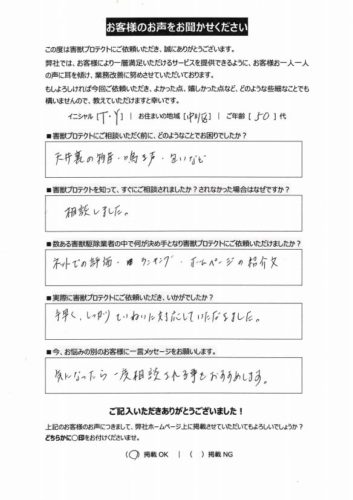 お客様のお声をお聞かせください
この度は害獣プロテクトにご依頼いただき、誠にありがとうございます。
弊社では、お客様により一層満足いただけるサービスを提供できるように、お客様お一人一人
の声に耳を傾け、業務改善に努めさせていただいております。
もしよろしければ今回ご依頼いただき、よかった点、嬉しかった点など、どのような些細なことでも
構いませんので、教えていただけますと幸いです。
イニシャル [T・Y] | お住まいの地域 [中川区] | ご年齢 [50] 代
■害獣プロテクトにご相談いただく前に、どのようなことでお困りでしたか?
天井裏の物音・鳴き声・匂いなど
■害獣プロテクトを知って、すぐにご相談されましたか?されなかった場合はなぜですか?
相談しました。
■数ある害獣駆除業者の中で何が決め手となり害獣プロテクトにご依頼いただけましたか?
ネットでの評価・ランキング・ホームページの紹介文
■実際に害獣プロテクトにご依頼いただき、いかがでしたか?
手早く、しっかりていねいに対応していただきました。
■今、お悩みの別のお客様に一言メッセージをお願いします。
気になったら一度相談される事をおすすめします。
ご記入いただきありがとうございました!
上記のお客様の声につきまして、弊社ホームページ上に掲載させていただいてもよろしいでしょうか?
どちらかに〇印をお付けくださいませ。
(〇) 掲載 OK | ( ) 掲載 NG